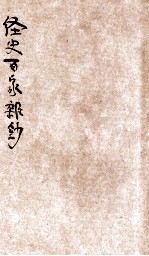 經史百家雜鈔